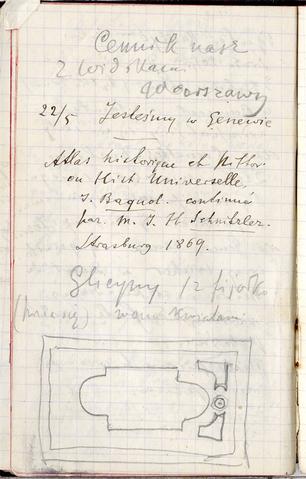 Cennik nasz
z widokami
Warszawy
22/5 Jesteśmy w Genewie
Atlas historique et Pittor.
ou Hist. Universelle,
J. Baquol. continué
par M. J. H. Schnitzler.
Strasburg 1869.
Glicyny /z fijołko
wemi kwiatami